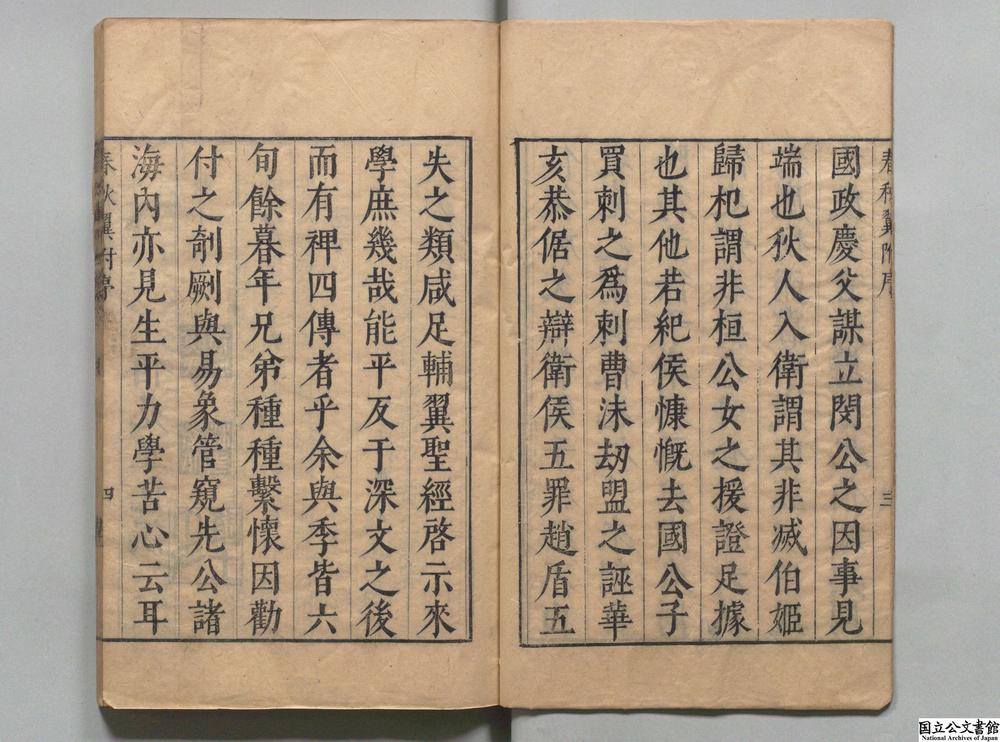 春秋翼附序
三
國政慶父謀立閔公之因事見
端也狄人入衛謂其非滅伯姬
歸杞謂非桓公女之援證足據
也其他若紀侯慷慨去國公子
買刺之爲刺曹沫刼盟之誣華
亥恭倨之辯衛侯五罪趙盾五
失之類咸足輔翼聖經啓示來
學庶幾哉能平反于深文之後
而有裨四傳者乎余與季皆六
旬餘暮年兄弟種種繫懷因勸
付之剞劂與易象管窺先公諸
海內亦見生平力學苦心云耳
春秋翼附序
四
国立公文書館
National Archives of Japan